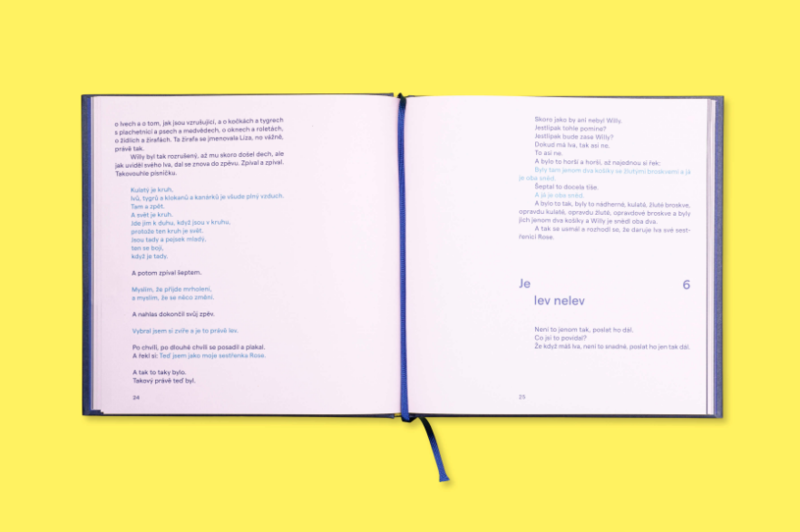 o lvech a o tom, jak jsou vzrušující, a o kočkách a tygrech
s plachetnicí a psech a medvědech, o oknech a roletách,
o židlích a žirafách. Ta žirafa se jmenovala Líza, no vážně,
právě tak.
Willy byl tak rozrušený, až mu skoro došel dech, ale
jak uviděl svého lva, dal se znova do zpěvu. Zpíval a zpíval.
Takovouhle písničku.
Kulatý je kruh,
lvů, tygrů a klokanů a kanárků je všude plný vzduch.
Tam a zpět.
A svět je kruh.
Zde jím k duhu, když jsou v kruhu,
protože ten kruh je svět.
Jsou tady a pejsek mladý,
ten se bojí,
když je tady.
A potom zpíval šeptem.
Myslím, že přijde mrholení,
a myslím, že se něco změní.
A nahlas dokončil svůj zpěv.
Vybral jsem si zvíře a je to právě lev.
Po chvíli, po dlouhé chvíli se posadil a plakal.
A řekl si: Teď jsem jako moje sestřenka Rose.
A tak to taky bylo.
Takový právě teď byl.
24
Skoro jako by ani nebyl Willy.
Jestlipak tohle pomine?
Jestlipak bude zase Willy?
Dokud má lva, tak asi ne.
To asi ne.
A bylo to horší a horší, až najednou si řek:
Byly tam jenom dva košíky se žlutými broskvemi a já
je oba snědl.
Šeptal to docela tiše.
A já je oba snědl.
A bylo to tak, byly to nádherné, kulaté, žluté broskve,
opravdu kulaté, opravdu žluté, opravdové broskve a byly
jich jenom dva košíky a Willy je snědl oba dva.
A tak se usmál a rozhodl se, že daruje lva své sest-
řenici Rose.
Je 6
lev nelev
Není to jenom tak, poslat ho dál.
Co jsi to povídal?
Že když máš lva, není to snadné, poslat ho jen tak dál.
25